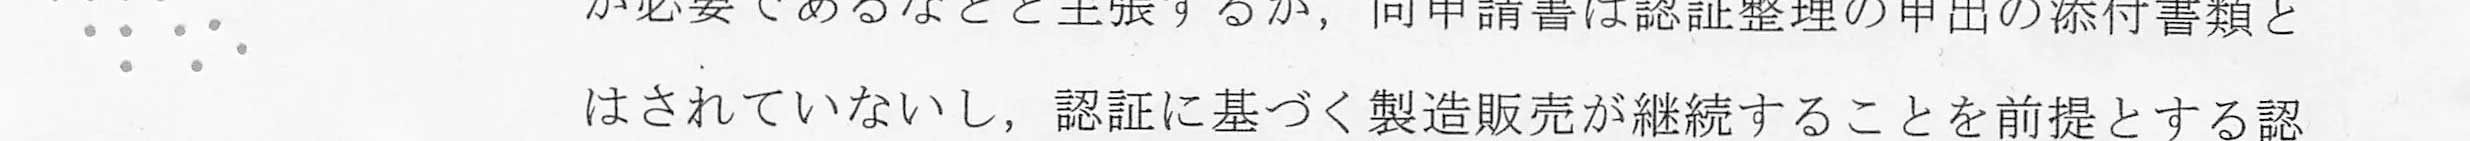 が必要であるなどと主張するが，同申請書は認証整理の申出の添付書類と
はされていないし，認証に基づく製造販売が継続することを前提とする認